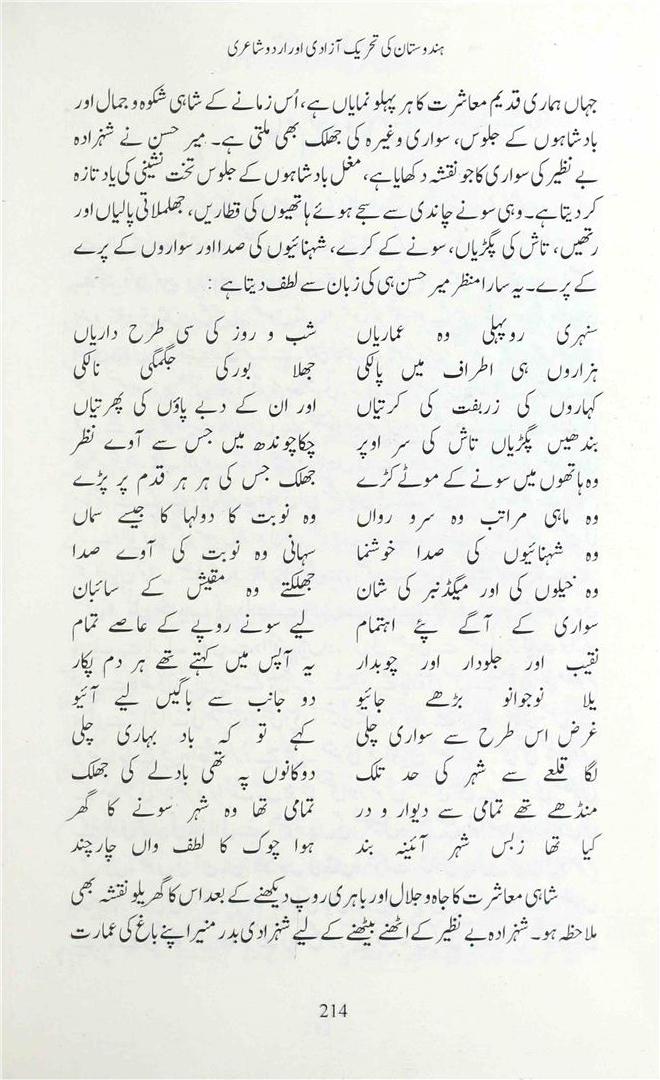 ہندوستان کی تحریک آزادی اور اردو شاعری
جہاں ہماری قدیم معاشرت کا ہر پہلو نمایاں ہے، اُس زمانے کے شاہی شکوہ و جمال اور
بادشاہوں کے جلوس، سواری وغیرہ کی جھلک بھی ملتی ہے۔ میر حسن نے شہزادہ
بے نظیر کی سواری کا جو نقشہ دکھایا ہے، مغل بادشاہوں کے جلوس تخت نشینی کی یاد تازہ
کر دیتا ہے۔ وہی سونے چاندی سے سجے ہوئے ہاتھیوں کی قطاریں، جھلملاتی پالیاں اور
رتھیں، تاش کی پگڑیاں، سونے کے کرے، شہنائیوں کی صدا اور سواروں کے پرے
کے پرے۔ یہ سارا منظر میر حسن ہی کی زبان سے لطف دیتا ہے :
سنہری روپہلی وہ عماریاں شب و روز کی سی طرح داریاں
ہزاروں ہی اطراف میں پالکی جھلا بور کی جگمگی نالکی
کہاروں کی زربفت کی کرتیاں اور ان کے دبے پاؤں کی پھرتیاں
بندھیں پگڑیاں تاش کی سر اوپر چکاچوندھ میں جس سے آوے نظر
وہ ہاتھوں میں سونے کے موٹے کڑے جھلک جس کی ہر ہر قدم پر پڑے
وہ ماہی مراتب وہ سرو رواں وہ نوبت کا دولہا کا جیسے سماں
وہ شہنائیوں کی صدا خوشنما سہانی وہ نوبت کی آوے صدا
وہ خیلوں کی اور میگڈنبر کی شان جھلکتے وہ مقیش کے سائبان
سواری کے آگے پئے اہتمام لیے سونے روپے کے عاصے تمام
نقیب اور جلودار اور چوبدار یہ آپس میں کہتے تھے ہر دم پکار
یلا نوجوانو بڑھے جائیو دو جانب سے باگیں لیے آئیو
غرض اس طرح سے سواری چلی کہے تو کہ باد بہاری چلی
لگا قلعے سے شہر کی حد تلک دوکانوں پہ تھی بادلے کی جھلک
منڈھے تھے تمامی سے دیوار و در تمامی تھا وہ شہر سونے کا گھر
کیا تھا زبس شہر آئینہ بند ہوا چوک کا لطف واں چار چند
شاہی معاشرت کا جاہ و جلال اور باہری روپ دیکھنے کے بعد اس کا گھریلو نقشہ بھی
ملاحظہ ہو۔ شہزادہ بے نظیر کے اٹھنے بیٹھنے کے لیے شہزادی بدر منیر اپنے باغ کی عمارت
214